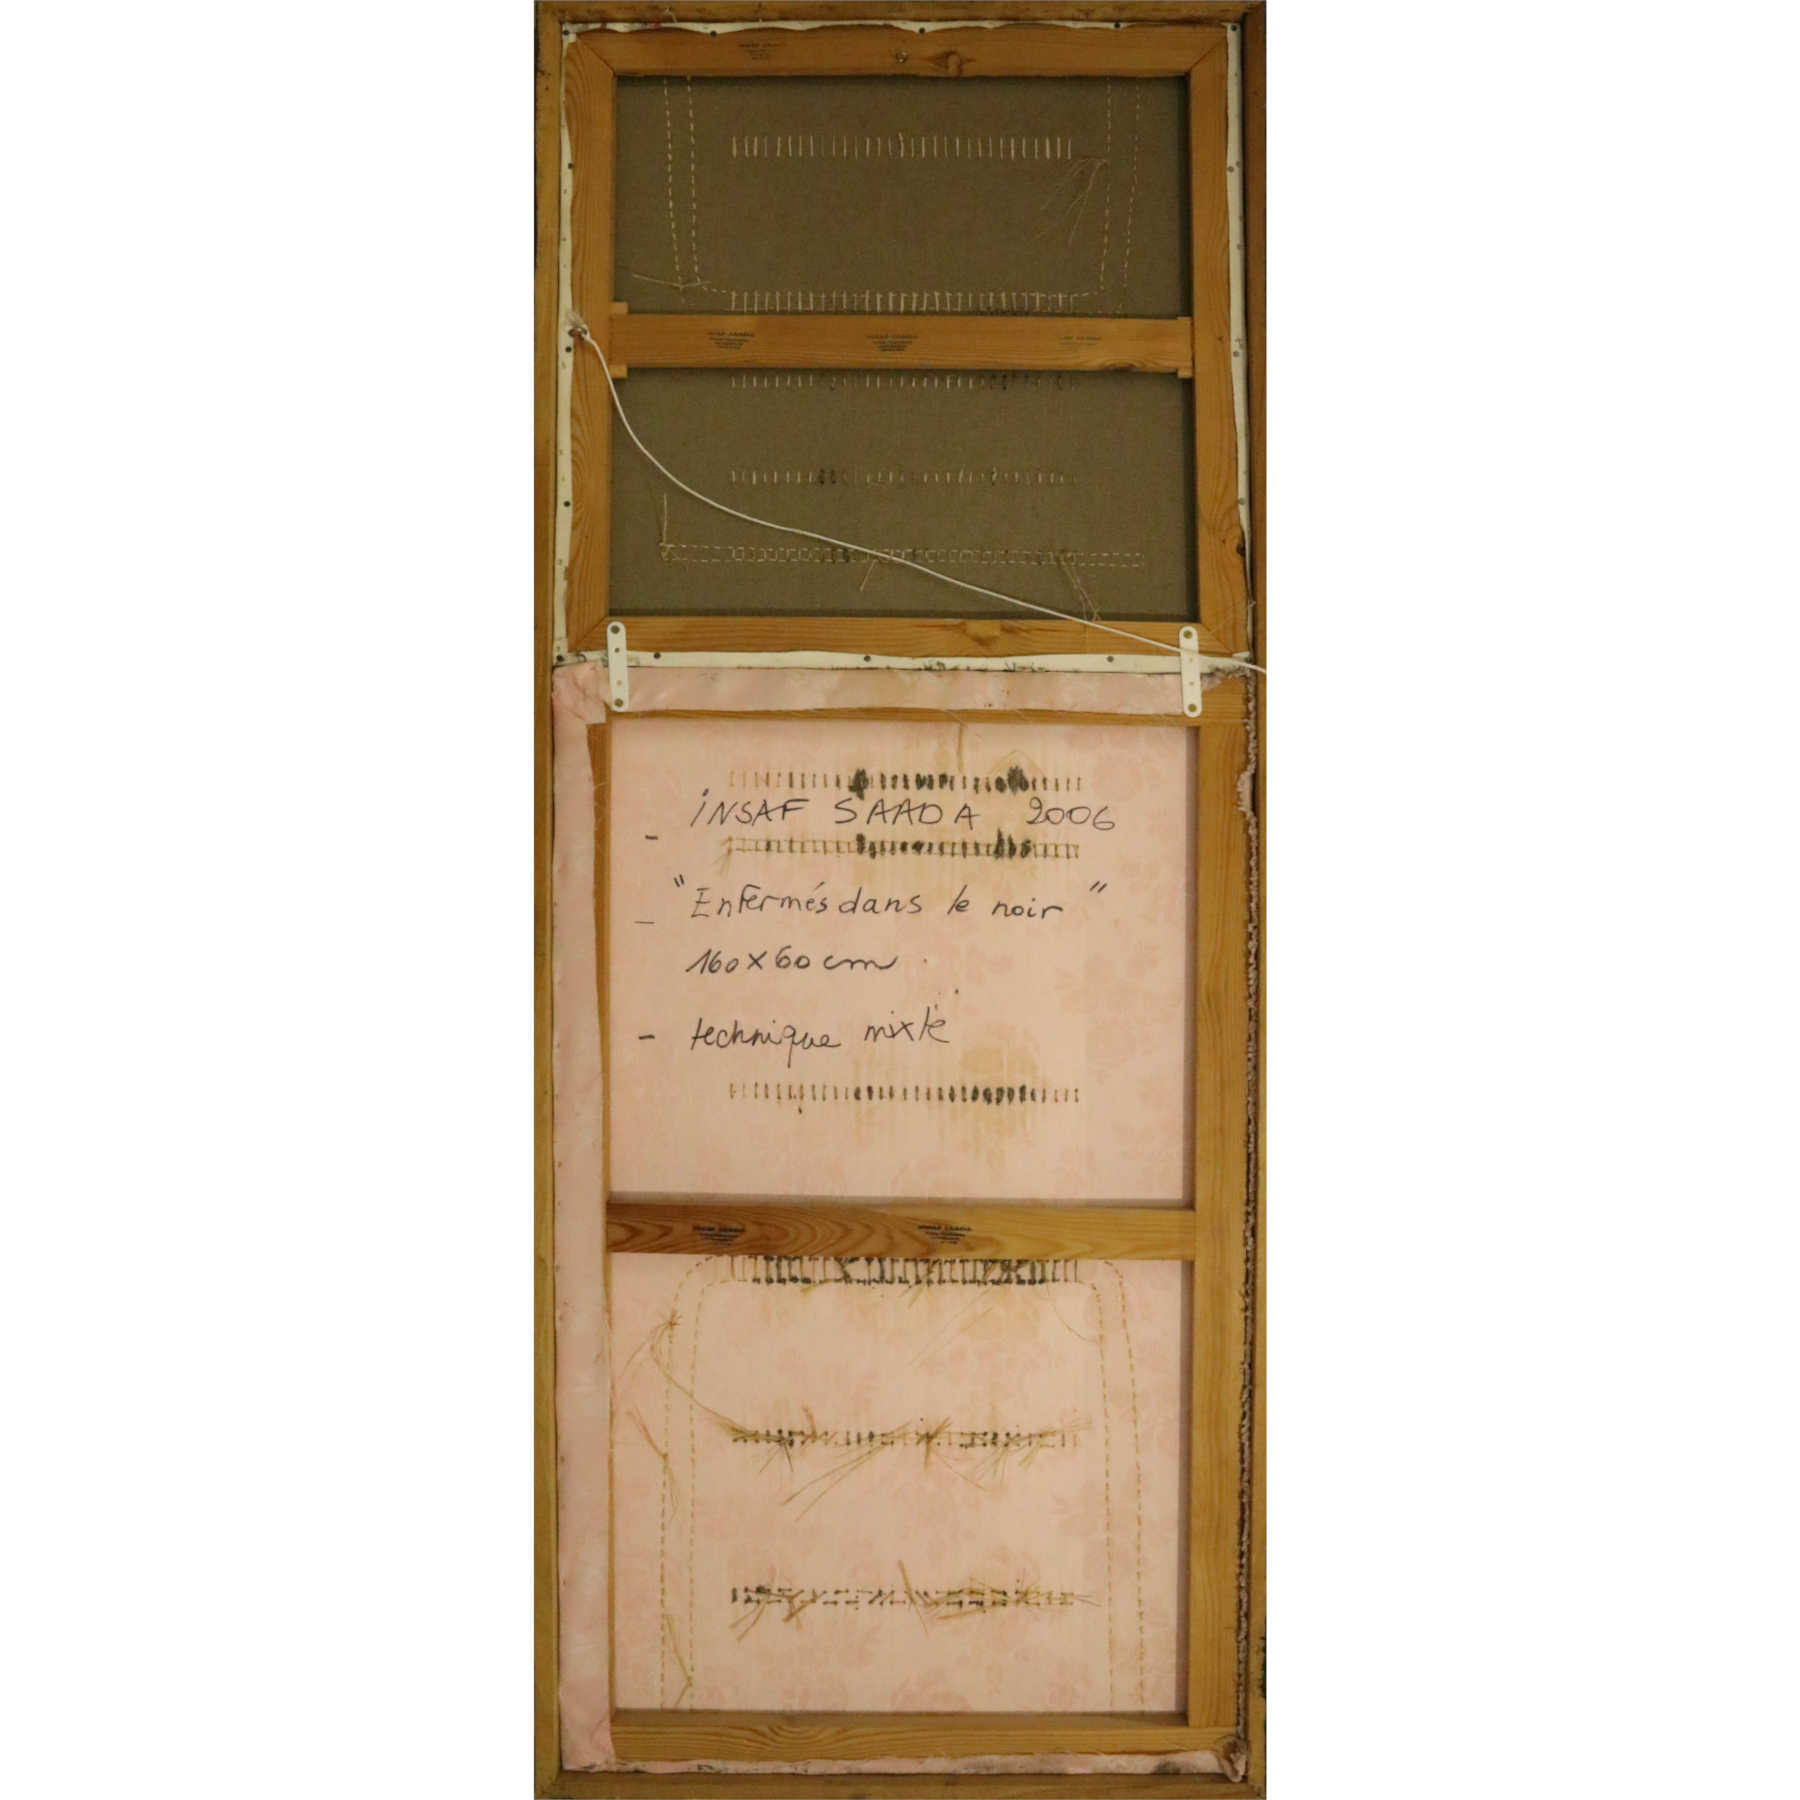 - INSAF SAADA 2006
- "Enfermés dans le noir"
160x60 cm
- technique mixte